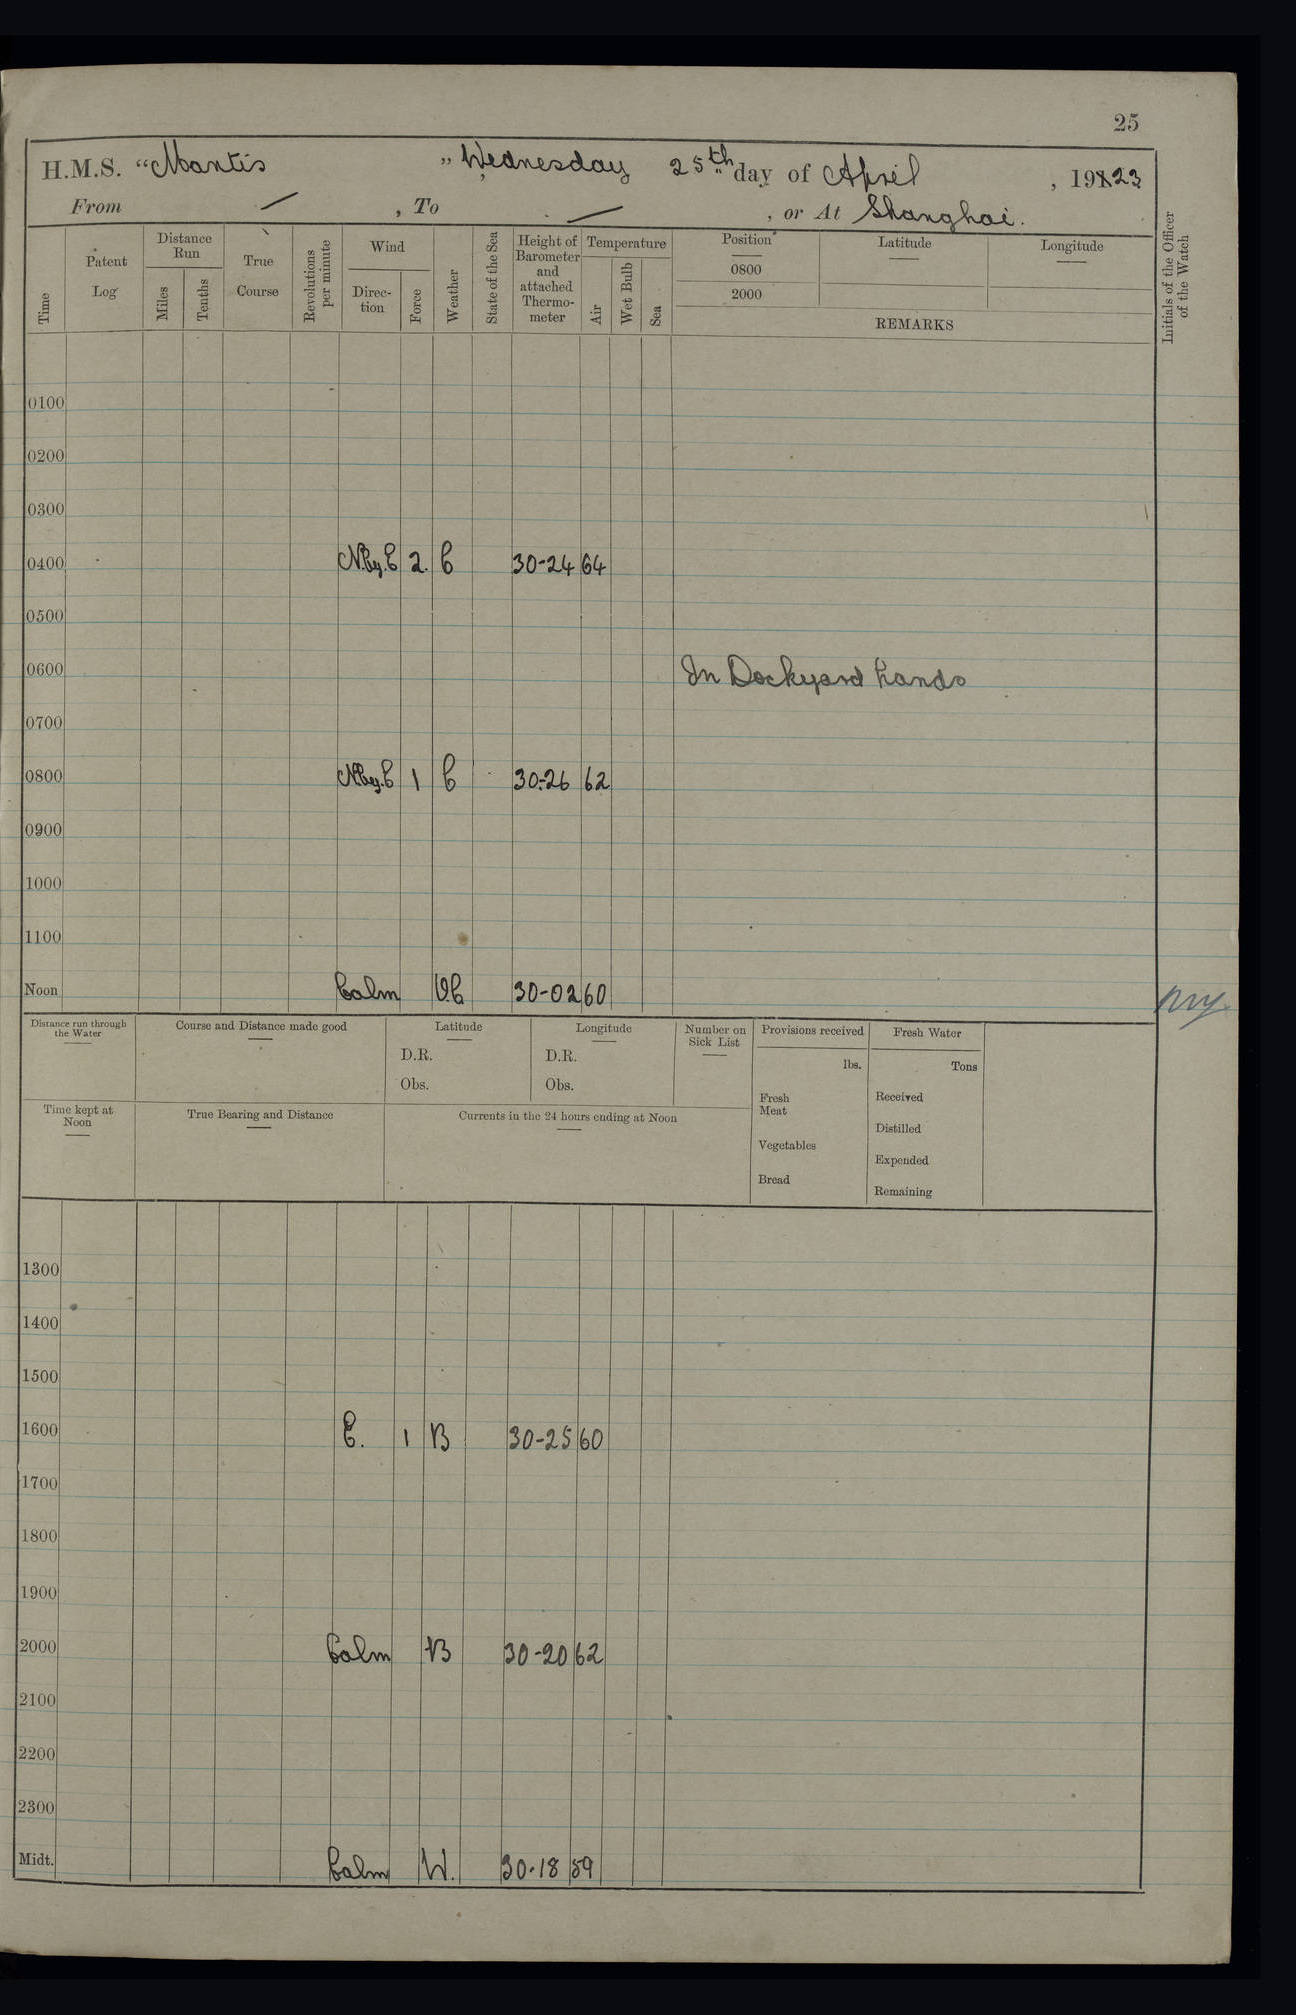 25
H.M.S. “Mantis ” Wednesday 25th day of April , 1923
From / , To / , or At Shanghai.
Time
Patent Log
Distance Run
Miles
Tenths
True Course
Revolutions per minute
Wind
Direc-tion
Force
Weather
State of the Sea
Height of Barometer and attached Thermo-meter
Temperature
Air
Wet Bulb
Sea
Position
0800
2000
Latitude
Longitude
REMARKS
Initials of the Officer of the Watch
0100
0200
0300
0400 N.by.E 2. C 30-24 64
0500
0600 In Dockyard hands
0700
0800 N.by.E 1 C 30.-26 62
0900
1000
1100
Noon Calm O.C 30-02 60
Distance run through the Water
Course and Distance made good
Latitude
D.R.
Obs.
Longitude
D.R.
Obs.
Number on Sick List
Provisions received
lbs.
Fresh Meat
Vegetables
Bread
Fresh Water
Tons
Received
Distilled
Expended
Remaining
Time kept at Noon
True Bearing and Distance
Currents in the 24 hours ending at Noon
1300
1400
1500
1600 E. 1 B 30-25 60
1700
1800
1900
2000 Calm B 30-20 62
2100
2200
2300
Midt. Calm W. 30.18 59